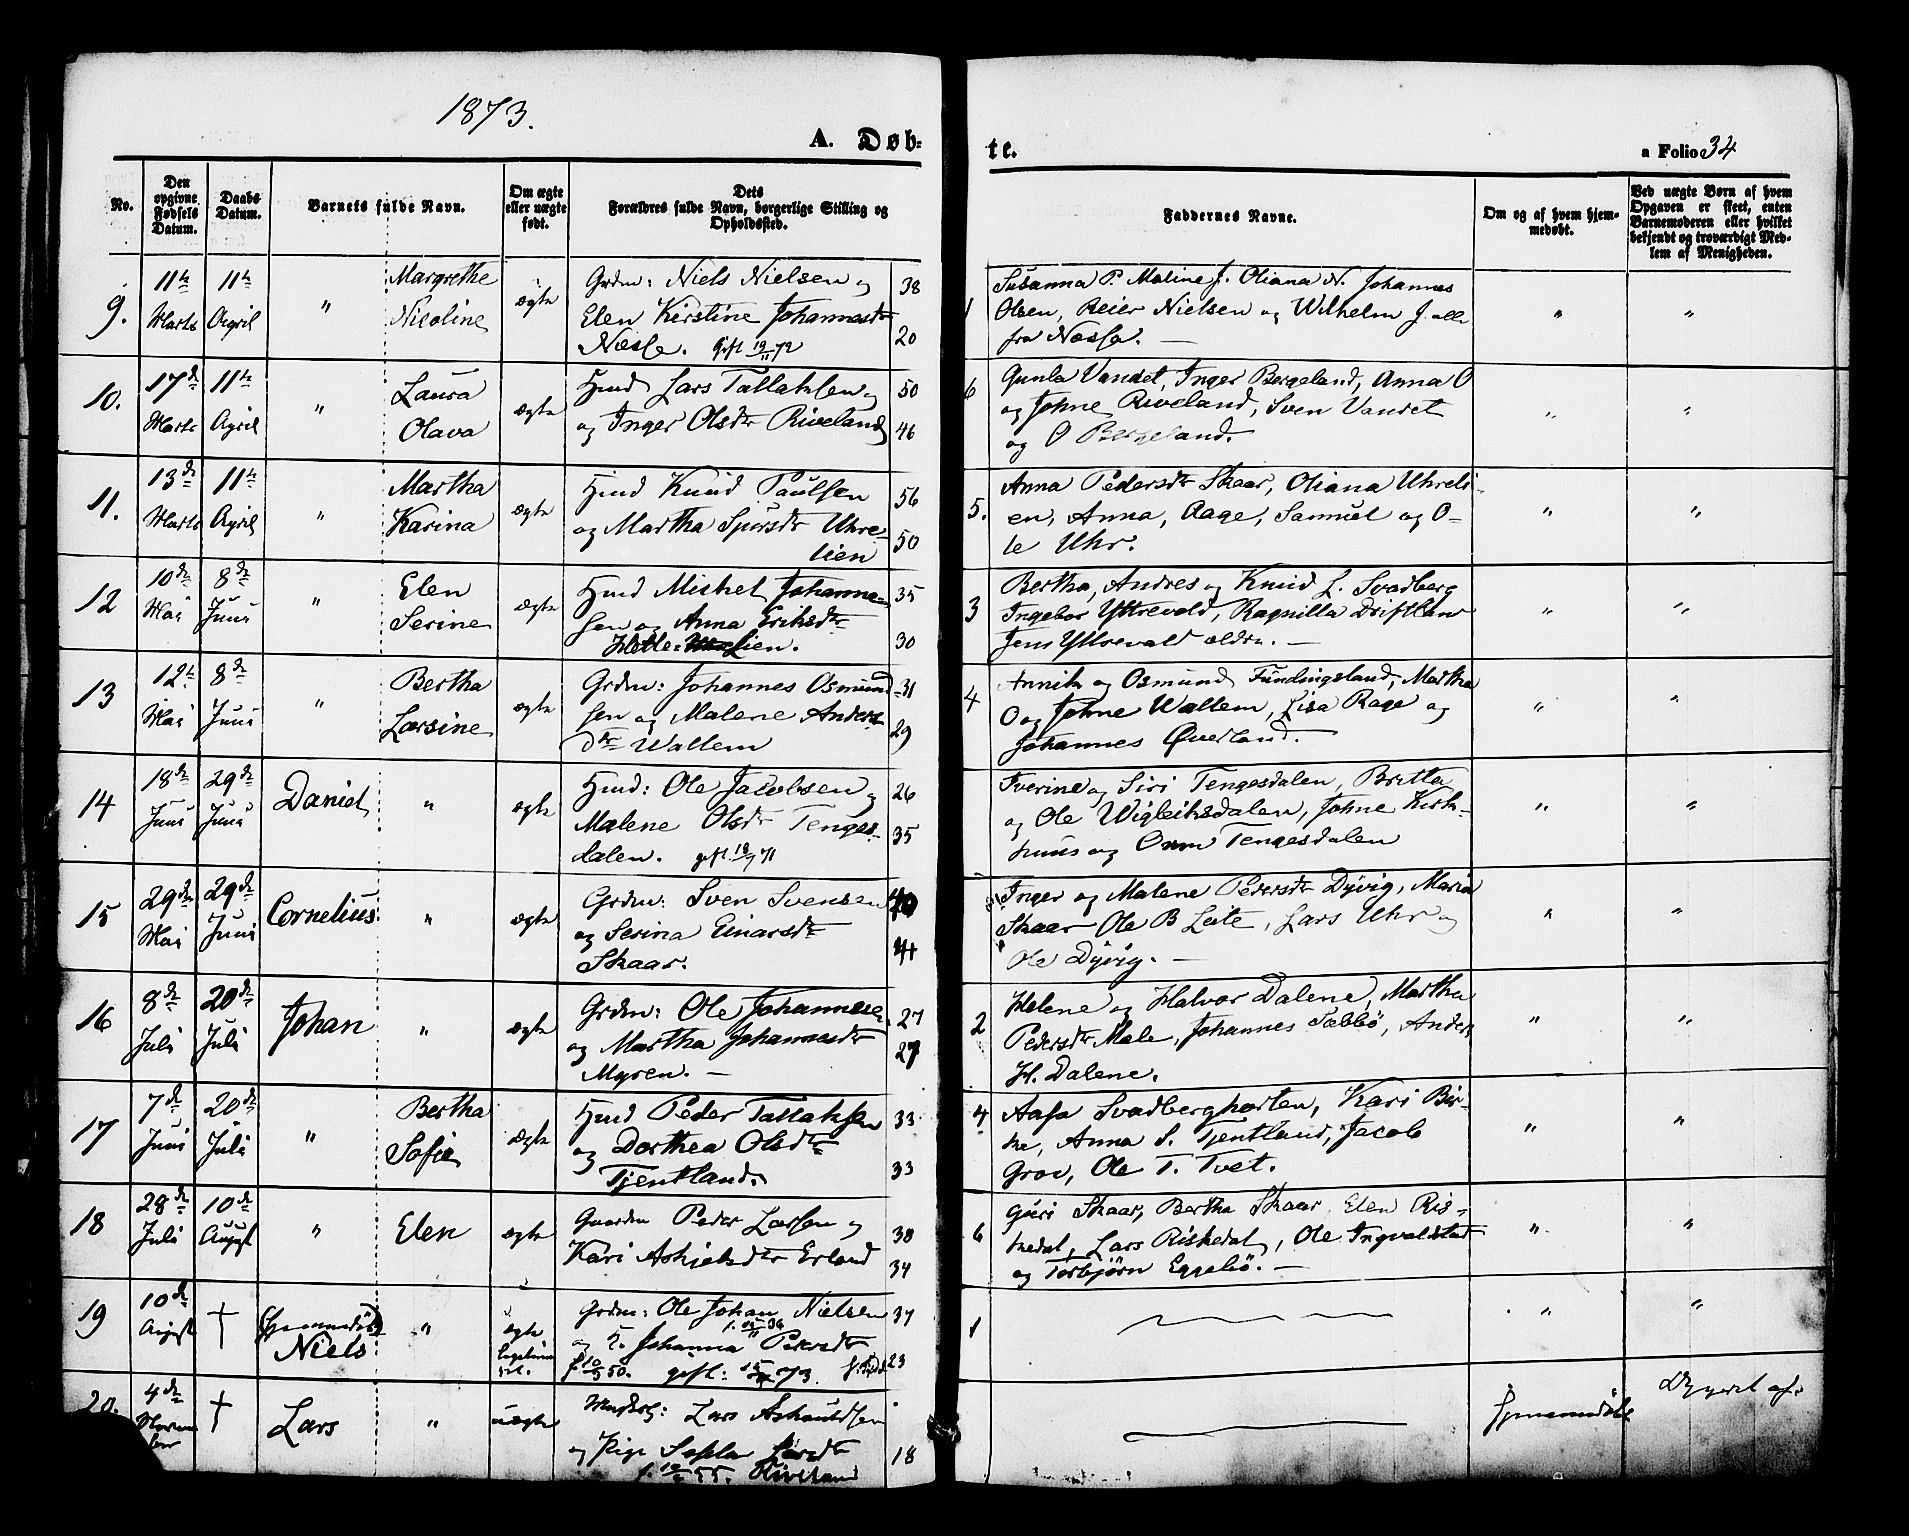 1873.
A. Døb-
te.
a Folio 34
No.
Den opgivne Fødsels Datum.
Daabs Datum.
Barnets fulde Navn.
Om ægte eller uægte født.
Dets Forældres fulde Navn, borgerlige Stilling og Opholdssted.
Faddernes Navne.
Om og af hvem hjemmedøbt.
Ved uægte Børn af hvem Opgaven er skeet, enten Barnemoderen eller hvilket bekjendt og troværdigt Medlem af Menigheden.
9. 11te Marts 11te April " Margrethe Nicoline ægte
Grdm: Niels Nielsen og 38
Elen Kirstine Johannesdtr 20
Næsse. Gift 19/11 72
1 Susanna P. Maline J. Oliana N. Johannes
Olsen, Reier Nielsen og Wilhelm J. alle
fra Næsse. — " "
10. 17de Marts 11te April " Laura Olava ægte
Hmd Lars Tallaksen 50
og Inger Olsdtr Riveland 46
6 Gunla Vandet, Inger Bergeland, Anna O
og Johne Riveland, Sven Vandet
og O Bergeland. " "
11. 13de Marts 11te April " Martha Karina ægte
Hmd Knud Paulsen 56
og Martha Sjursdtr Uhre- 50
lien
5. Anna Pedersdtr Skaar, Oliana Uhreli-
en, Anna, Aage, Samuel og O-
le Uhr. " "
12 10de Mai 8de Juni " Elen Serine ægte
Hmd Mikkel Johanne- 35
sen og Anna Eriksdtr
Hette-lien. 30
3 Bertha, Andres og Knud L. Svadberg
Ingebor Yttrevold, Ragnilla Driftland
Jens Yttrevold ældre. — " "
13 12te Mai 8de Juni " Bertha Larsine ægte
Grdm: Johannes Osmund- 31
sen og Malene Anders- 29
dtr Wallem
4 Annik og Osmund Fundingsland, Martha
O og Johne Wallem, Lisa Rage og
Johannes Øverland. " "
14 18de Juni 29de Juni Daniel " ægte
Hmd: Ole Jacobsen og 26
Malene Olsdtr Tenges- 35
dalen. gift 18/7 71
Iverine og Siri Tengesdalen, Britta
og Ole Wigleiksdalen, Johne Kirk-
huus og Orm Tengesdalen " "
15 29de Mai 29de Juni Cornelius " ægte
Grdm: Sven Svensen 40
og Serina Einarsdtr
Skaar. 41
Inger og Malene Pedersdtr Dyvig, Maria
Skaar Ole B Leite, Lars Uhr og
Ole Dyvig. — " "
16 8de Juli 20de Juli Johan " ægte
Grdm: Ole Johannesen 27
og Martha Johannesdtr 27
Myren. —
2 Helene og Halvor Dalene, Martha
Pedersdtr Male, Johannes Sæbbø, Anders
H. Dalene. " "
17 7de Juni 20de Juli " Bertha Sofie ægte
Hmd Peder Tallaksen 33
og Dorthea Olsdtr
Tjentland. 33
4 Aasa Svadberghorten, Kari Bir-
ke, Anna S. Tjentland, Jacob
Grov, Ole T. Tvet. " "
18 28de Juli 10de August " Elen ægte
Gaardm Peder Larsen og 38
Kari Askjelsdtr Erland 34
6 Guri Skaar, Bertha Skaar, Elen Ris-
kedal, Lars Riskedal, Ole Ingvaldstad
og Torbjørn Eggebø. — " "
19 10de August † (Hjemmedøbt) Niels " ægte
Grdm: Ole Johan Nielsen 37
og Johanna Pedersdtr
f. 10/5 50. gift: 73. 23
1 " "
20. 4de † Lars " uægte
Ungk: Lars Askouldsen
og Pige Larsdtr 18
Riveland
Hjemmedøbt
Opgivet af: